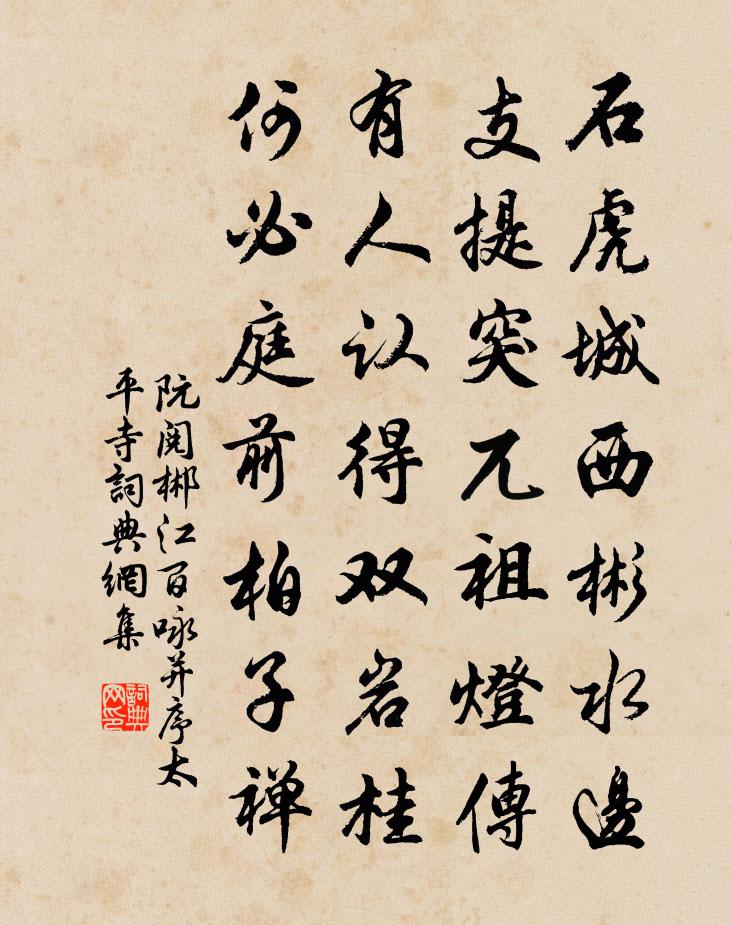 石虎城西彬水邊
支提突兀祖燈傳
有人认得双岩桂
何必庭前柏子禅
阮阅郴江百咏并序太
平寺詞典網集
詞典网印